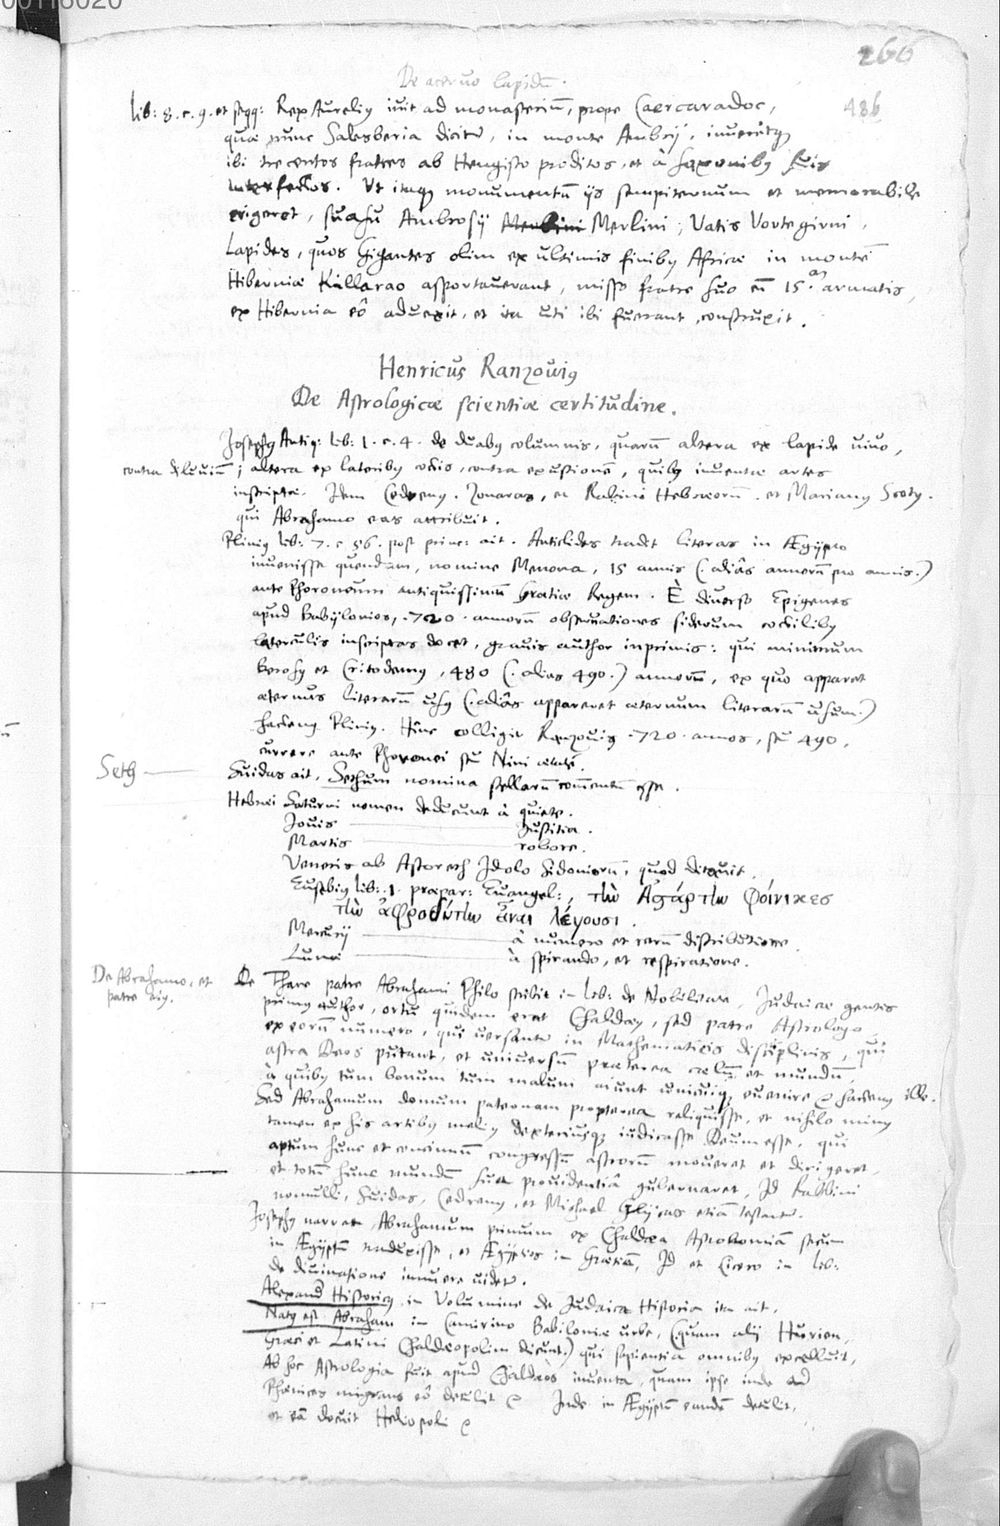 00116020
266
486
De aceruo lapidū.
lib: 8. c. 9. et seqq: Rex Aurelius iuit ad monasteriū, prope Caercaradoc,
quæ nunc Salesberia dicit, in monte Ambrij, inuenitq
ibi trecentos fratres ab Hengisto proditos, et à Saxonibus suis
interfectos. Ut itaq monumentū ijs sempiternum et memorabile
erigeret, suasu Ambrosij Merlini, Vatis Vortegirni,
Lapides, quos Gigantes olim ex ultimis finibus Africæ in montē
Hiberniæ Killarao asportauerant, misso fratre suo cū 15. armatis,
ex Hibernia eò aduexit, et ita uti ibi fuerant, construxit.
Henricus Ranzouius
De Astrologicæ scientiæ certitudine.
Josephus Antiq: lib: 1. c. 4. de duabus columnis, quarū altera ex lapide uiuo,
contra diluuiū; altera ex lateribus coctis, contra exustionē, quibus inuentæ artes
inscriptæ. Idem Cedrenus. Zonaras, et Rabini Hebræorū. et Marianus Scotus.
qui Abrahamo eas attribuit.
Plinius lib: 7. c 56. post princ: ait. Anticlides tradit literas in Ægypto
inuenisse quendam, nomine Menona, 15 annis (. aliâs annorū pro annis.)
ante Phoroneum antiquissimū Græciæ Regem. È diuerso Epigenes
apud Babylonios, .720. annorū obseruationes siderum coctilibus
laterculis inscriptas docet, grauis author inprimis: qui minimum
Berosus et Critodemus, 480 (. alias 490.) annorū, ex quo apparet
æternus literarū usus (. aliâs apparet æternum literarū usum.)
hactenus Plinius. Hinc colligit Ranzouius .720. annos, seu 490,
currere ante Phoronei seu Nini ætatē.
Seth
Suidas ait, Sethum nomina stellarū commentū esse.
Hebræi Saturni nomen deducunt à quiete.
Jouis Justitia.
Martis robore.
Veneris ab Astoreth Idolo Sidoniorū, quod
Eusebius lib: .1. præpar: Euangel:, τὴν Ἀστάρτην φοίνικες
τὴν ἀφροδίτην εἶναι λέγουσι.
Mercurij à numero et rerū distributione.
Lunæ à spirando, et respiratione.
De Abrahamo, et
patre eius.
De Thare patre Abrahami Philo scribit in lib: de Nobilitate, Judaicæ gentis
primus author, ortū quidem erat Chaldæus, sed patre Astrologo
ex eorū numero, qui uersantur in Mathematicis disciplinis, qui
astra Deos putant, et uniuersū præterea cælū et mundū,
à quibus tum bonum tum malum aiunt unicuiq euenire & hactenus ille.
Sed Abrahamum domum paternam propterea reliquisse, et nihilo minus
tamen ex his artibus melius dexteriusq iudicasse Deum esse, qui
aptum hunc et continuū congressū astrorū moueret et dirigeret,
et totū hunc mundū sua prouidentiâ gubernaret, Id Rabbini
nonnulli, Suidas, Cedrenus, et Michael Glycas etiā testantur.
Josephus narrat, Abrahamum primum ex Chaldæa Astronomiā secum
in Ægyptū traduxisse, et Ægyptios in Græciā, Id et Cicero in lib:
de diuinatione innuere uidetur.
Alexand Historicus, in Volumine de Judaica Historia ita ait.
Natus est Abraham in Camirino Babiloniæ urbe, (quam alij Hurien,
Græci et Latini Chaldeopolim dicunt,) qui sapientia omnibus excelluit,
Ab hoc Astrologia fuit apud Chaldæos inuenta, quam ipse inde ad
Phœnices migrans eò detulit & Inde in Ægyptū eandē detulit,
et eā docuit Heliopoli &